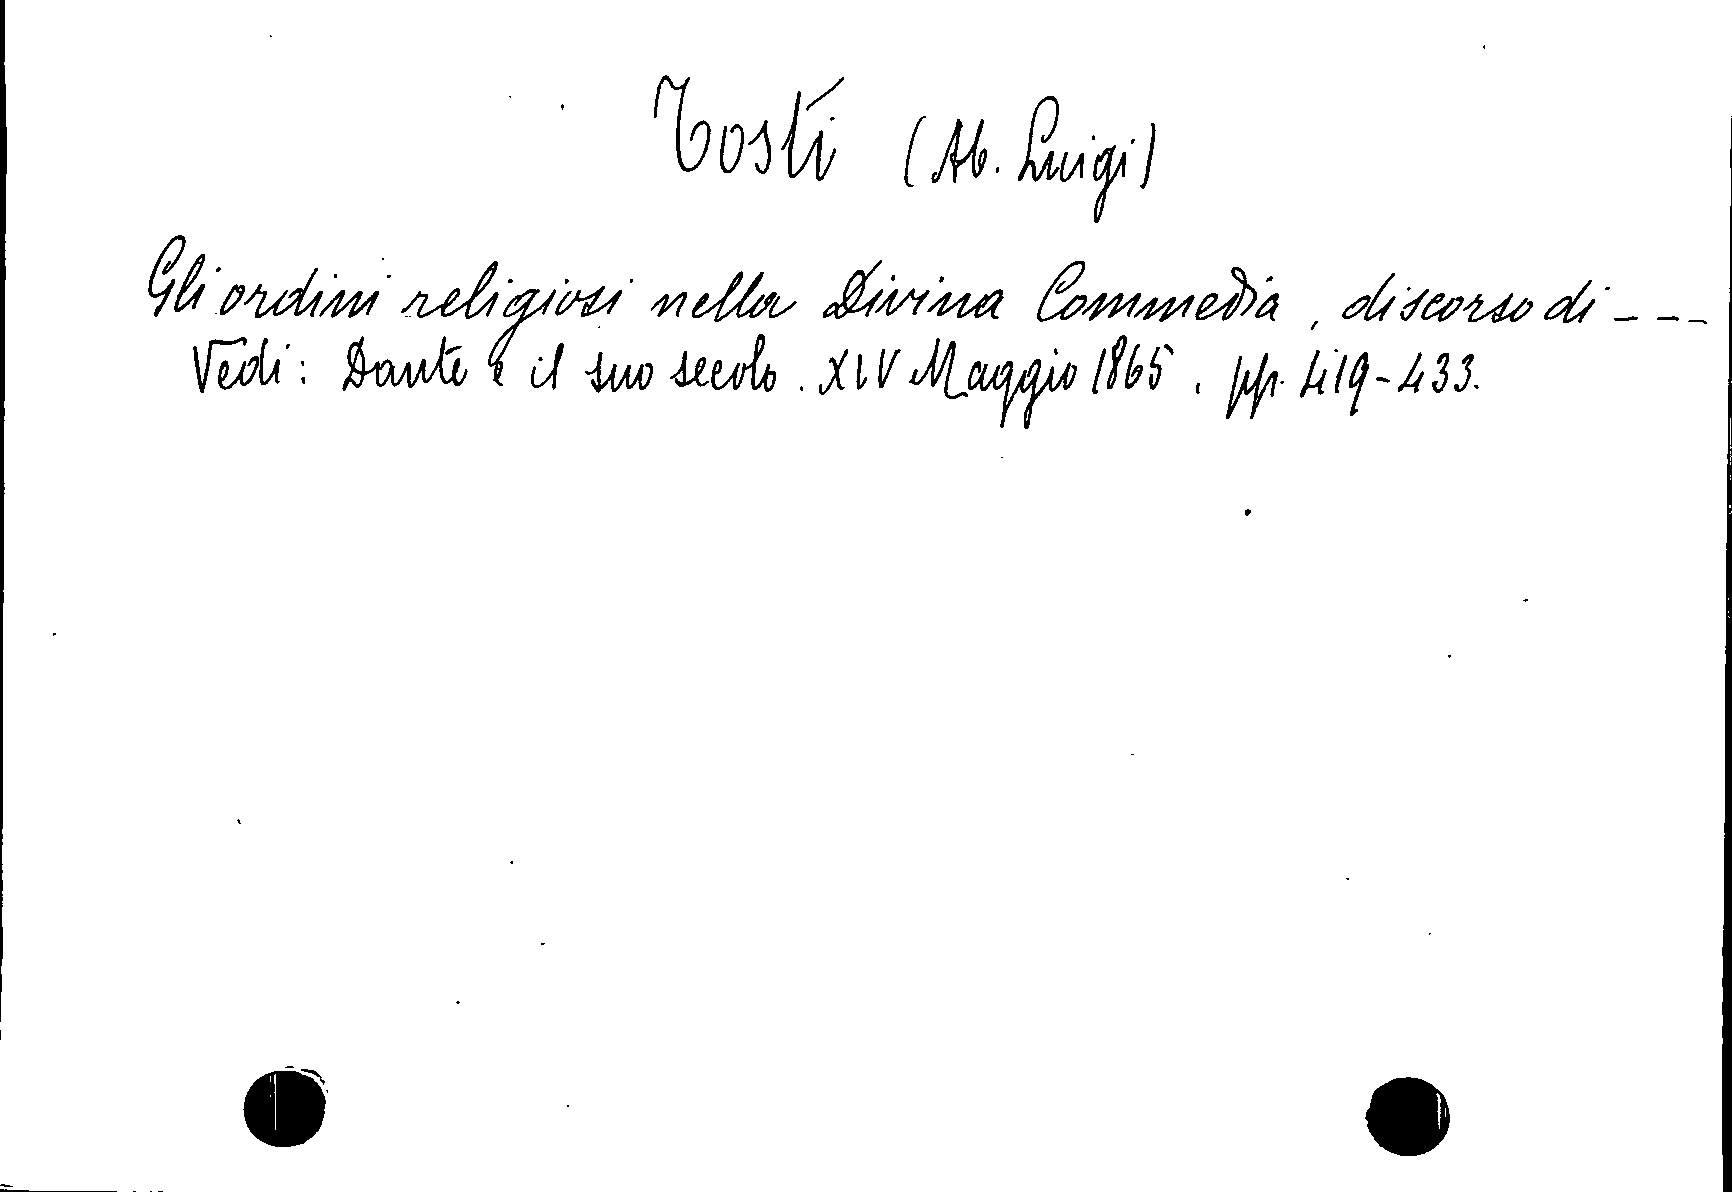 Tosti (Ab. Luigi)
Gli ordini religiosi nella Divina Commedia, discorso di ---
Vedi: Dante e il suo secolo. XIV Maggio 1865. pp. 419-433.